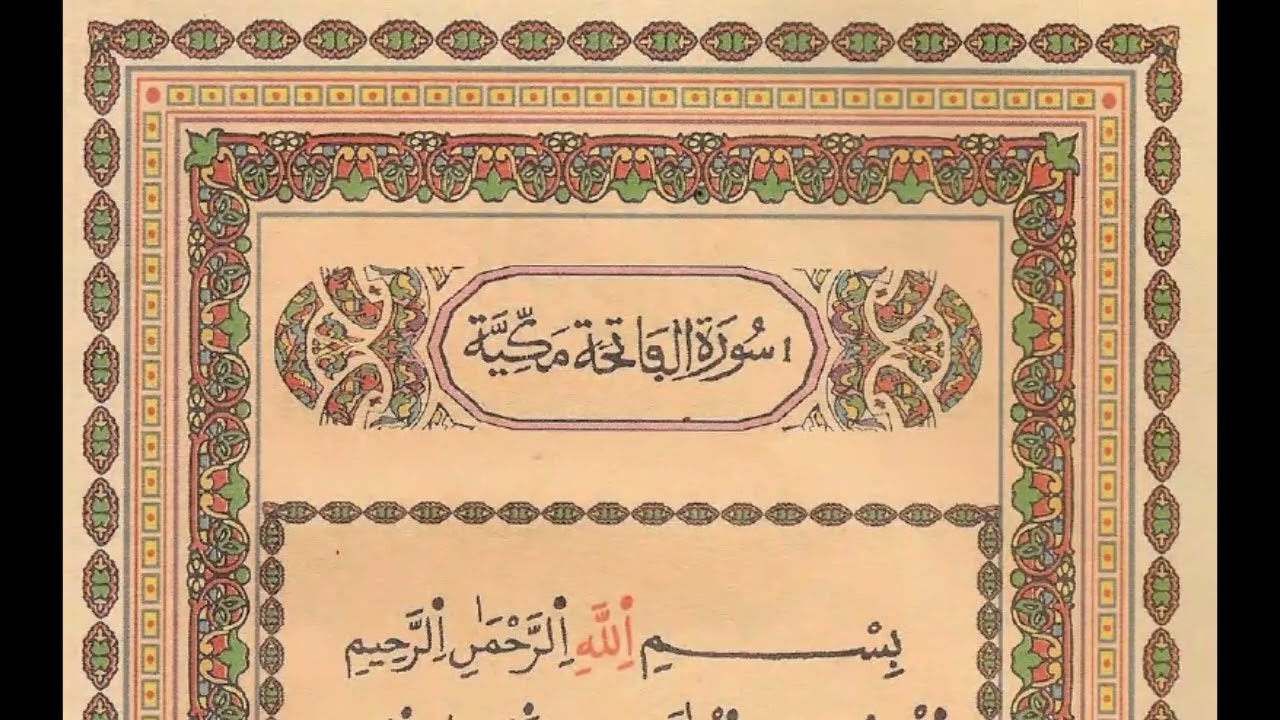 ١ سُورَةُ الفَاتِحَة مَكِّيَّة
بِسْمِ اِ۬للَّهِ اِ۬لرَّحْمَٰنِ اِ۬لرَّحِيمِ